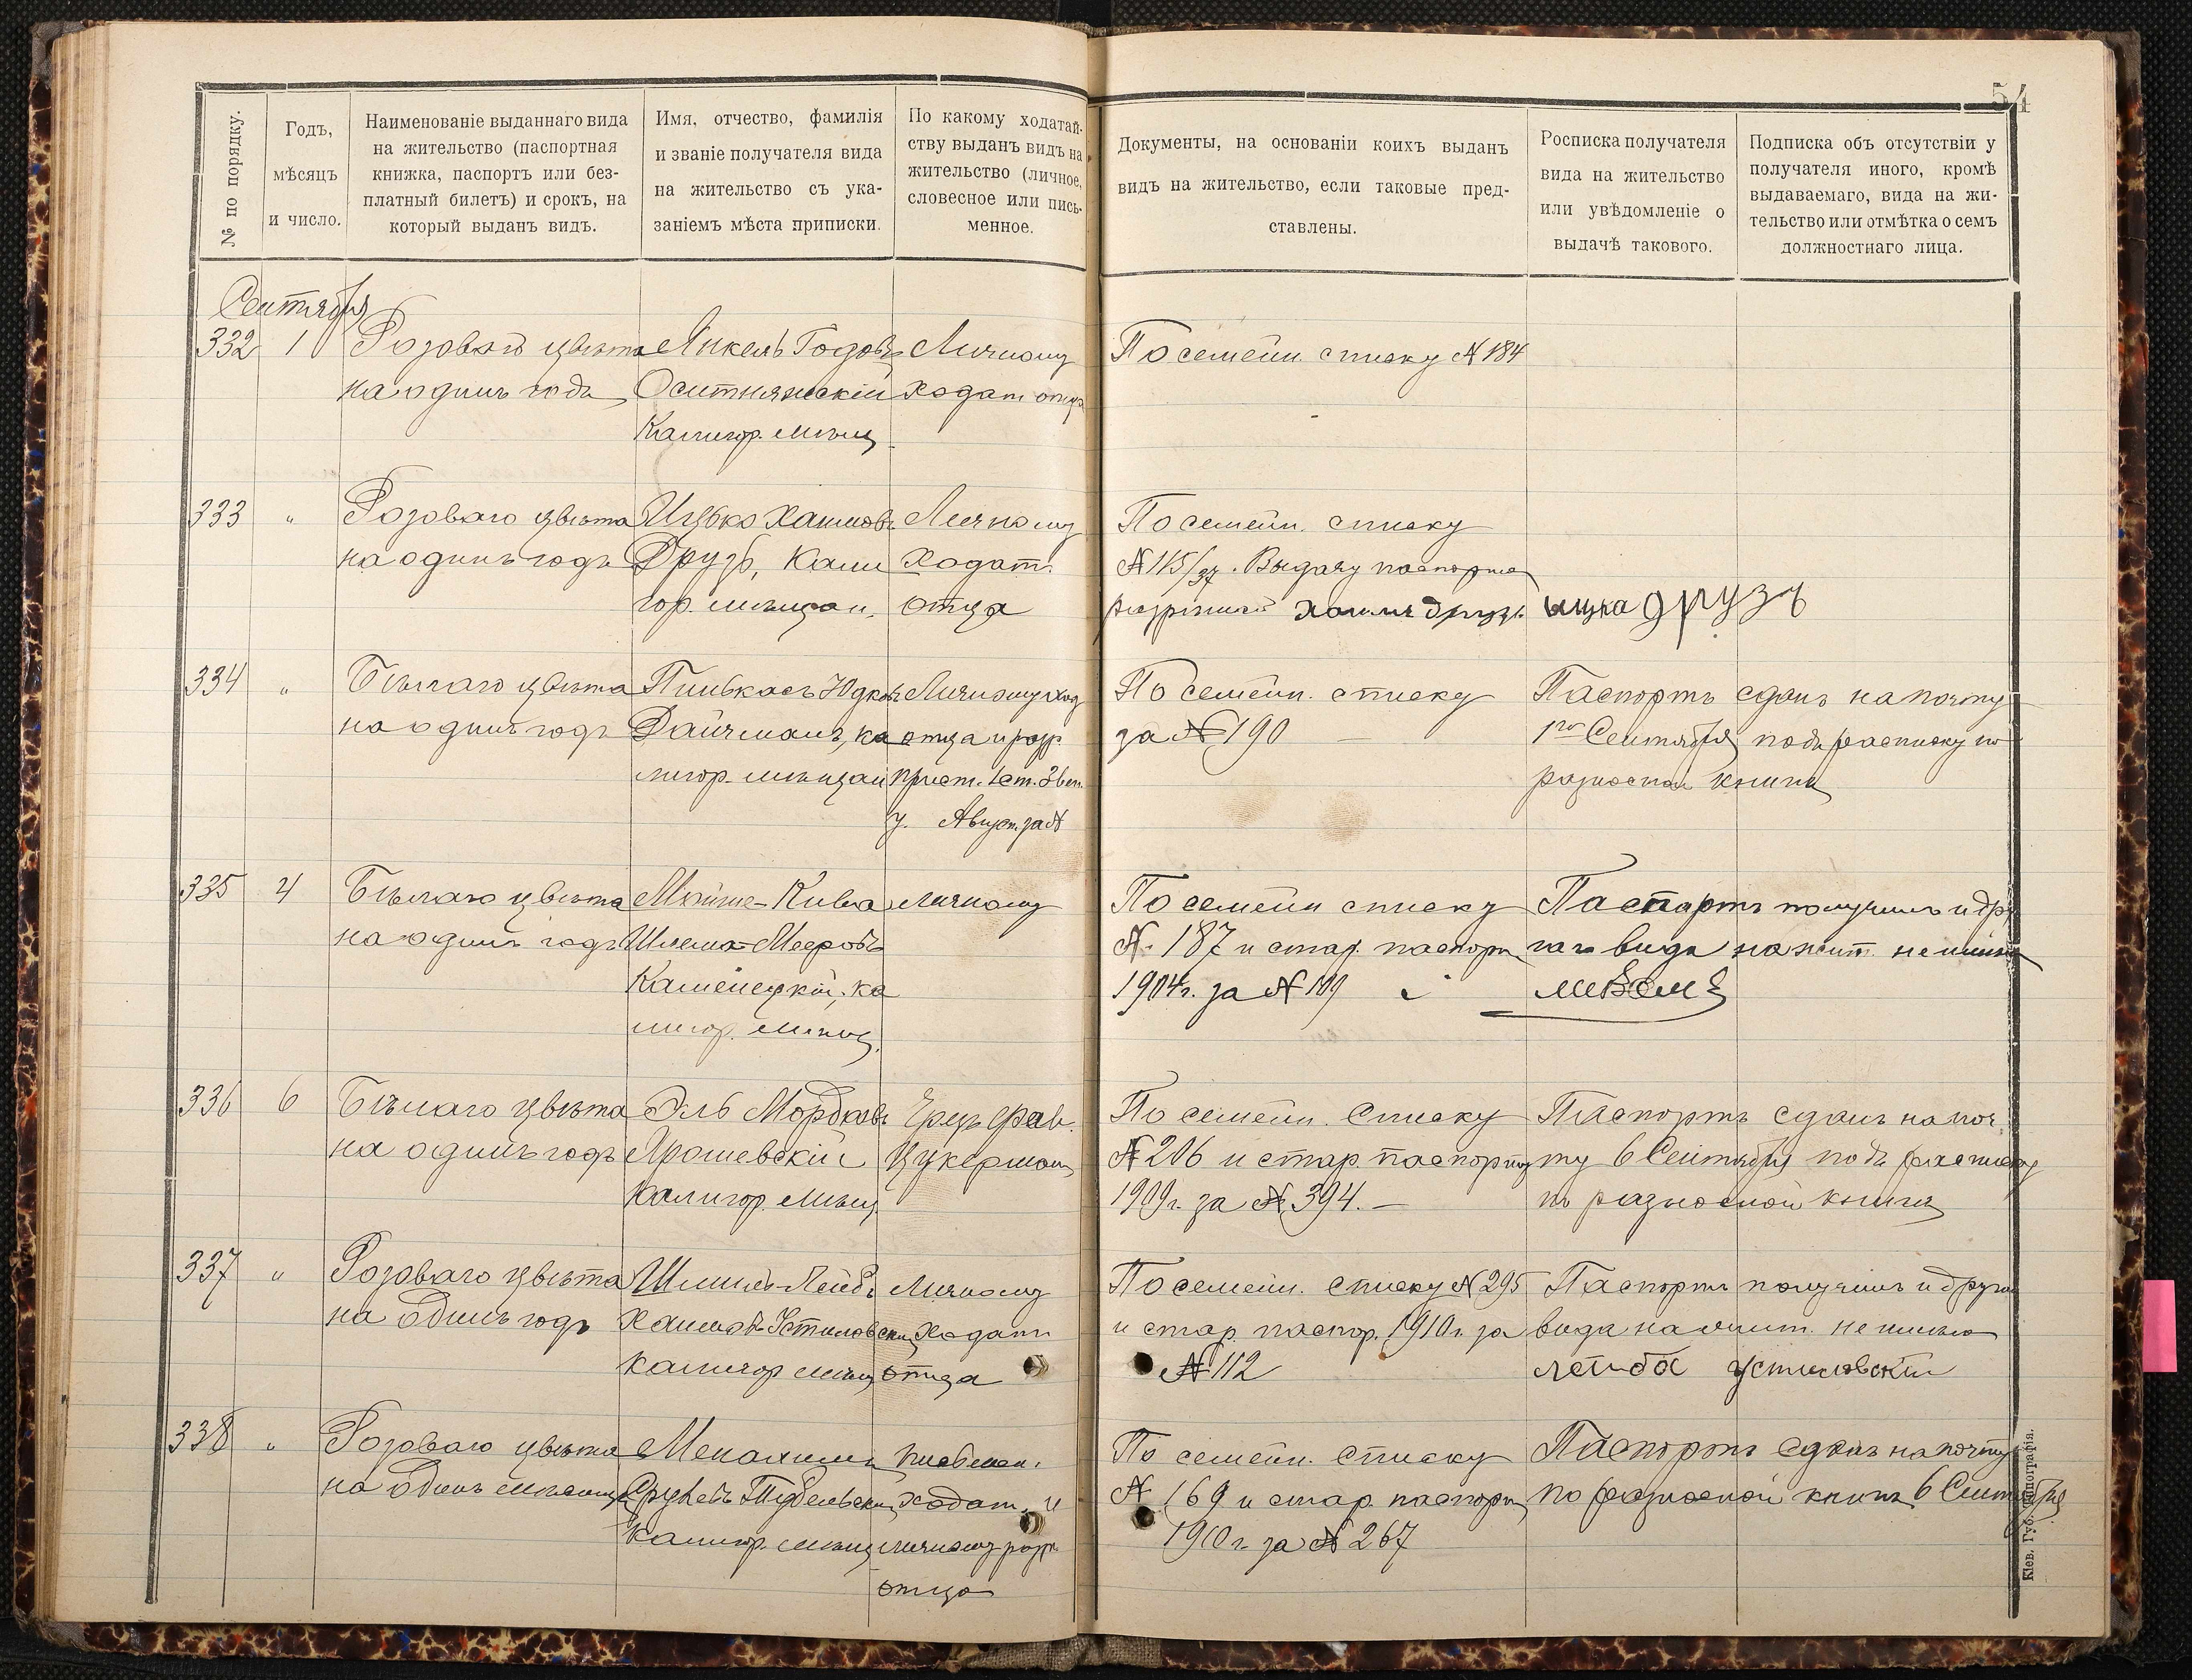 54
№ по порядку.
Годъ,
мѣсяцъ
и число.
Наименованіе выданнаго вида
на жительство (паспортная
книжка, паспортъ или без-
платный билетъ) и срокъ, на
который выданъ видъ.
Имя, отчество, фамилія
и званіе получателя вида
на жительство съ ука-
заніемъ мѣста приписки.
По какому ходатай-
ству выданъ видъ на
жительство (личное,
словесное или пись-
менное.
Документы, на основаніи коихъ выданъ
видъ на жительство, если таковые пред-
ставлены.
Росписка получателя
вида на жительство
или увѣдомленіе о
выдачѣ таковаго.
Подписка объ отсутствіи у
получателя иного, кромѣ
выдаваемаго, вида на жи-
тельство или отмѣтка о семъ
должностнаго лица.
Сентября
332 1
Розоваго цвѣта
на одинъ годъ
Янкель
Оситнянскій
Калигор. мѣщ
Личному
ходат отца
По семейн. списку № 184
333 "
Розоваго цвѣта
на одинъ годъ
Ицько Хаимовъ
Друзь, Кали
гор. мѣщан.
Личному
ходат.
отца
По семейн. списку
№ 115/37. Выдачу паспорта
Хаимъ Друзь.
ицка друзь
334 "
Бѣлаго цвѣта
на одинъ годъ
Пинькасъ Юдковъ
Дайчманъ, ка
лигор. мѣщан
Личному ход
отца и разр.
Прист. 1 ст. Звен.
у. Август. за №
По семейн. списку
за № 190 —
Паспортъ сданъ на почту
1го Сентября подъ расписку по
разносной книгѣ
335 4
Бѣлаго цвѣта
на одинъ годъ
Мойше-Кива
Шлема-Мееровъ
Каменецкій, ка
лигор. мѣщ.
личному
По семейн списку
№ 187 и стар. паспорт
1904 г. за № 109
Паспортъ получилъ и дру
гаго вида на жит. не имѣю
336 6
Бѣлаго цвѣта
на одинъ годъ
Эль Мордковъ
Ярошевскій
Калигор. мѣщ
Чрезъ
Цукерман
По семейн. списку
№ 206 и стар. паспорту
1909 г. за № 394. —
Паспортъ сданъ на поч
ту 6 Сентября подъ расписку
по разносной книгѣ
337 "
Розоваго цвѣта
на одинъ годъ
Шлиомъ-Лейбъ
Хаимовъ Устиловскій
Калигор мѣщ
Личному
ходат
отца
По семейн. списку № 295
и стар. паспор. 1910 г. за
№ 112
Паспортъ получилъ и друго
вида на жит. не имѣю
лейба устиловскій
338 "
Розоваго цвѣта
на одинъ мѣсяцъ
Менахимъ
Срулевъ Тубельскій
Калигор. мѣщ
письмен.
ходат. и
личному разр.
отца
По семейн. списку
№ 169 и стар. паспорт
1910 г. за № 267
Паспортъ сданъ на почту
по разносной книгѣ 6 Сентября
Кіев. Губ. Типографія.